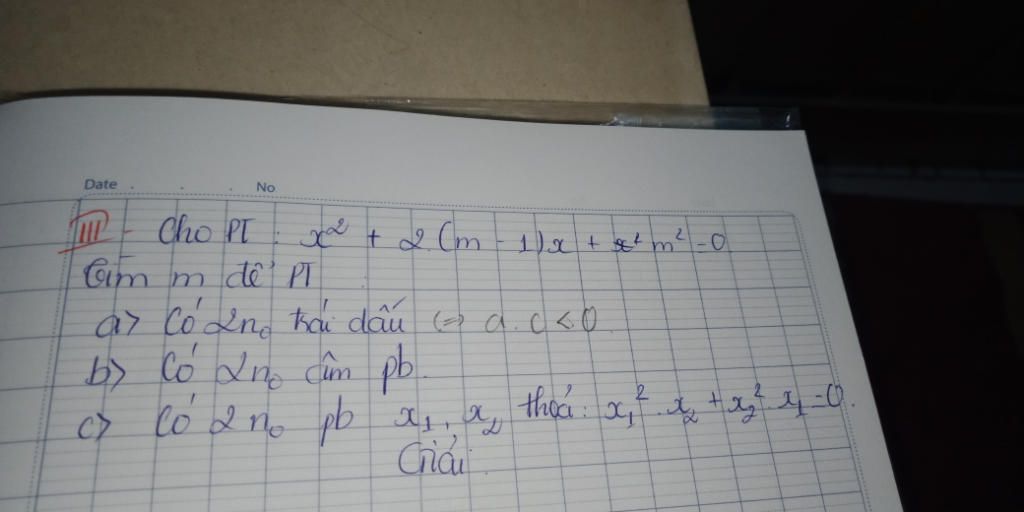 Date . . . No
III - Cho PT : x² + 2.(m - 1)x + m² = 0
Tìm m để PT
a> Có 2n₀ trái dấu <=> a.c < 0
b> Có 2n₀ âm pb.
c> Có 2n₀ pb x₁, x₂ thoả: x₁².x₂ + x₂².x₁ = 0.
Giải